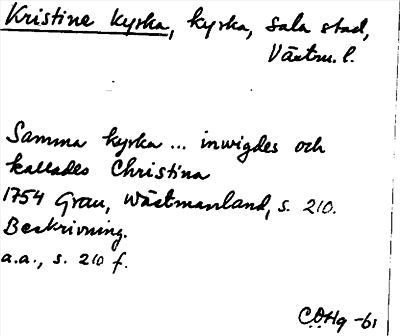 Kristine kyrka, kyrka, Sala stad,
Västm. l.
Samma kyrka ... inwigdes och
kallades Christina
1754 Grau, Wästmanland, s. 210.
Beskrivning.
a.a., s. 210 f.
C.Ö.Hg -61